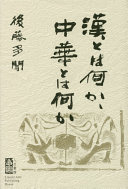 漢とは何か、
中華とは何か
後藤多聞